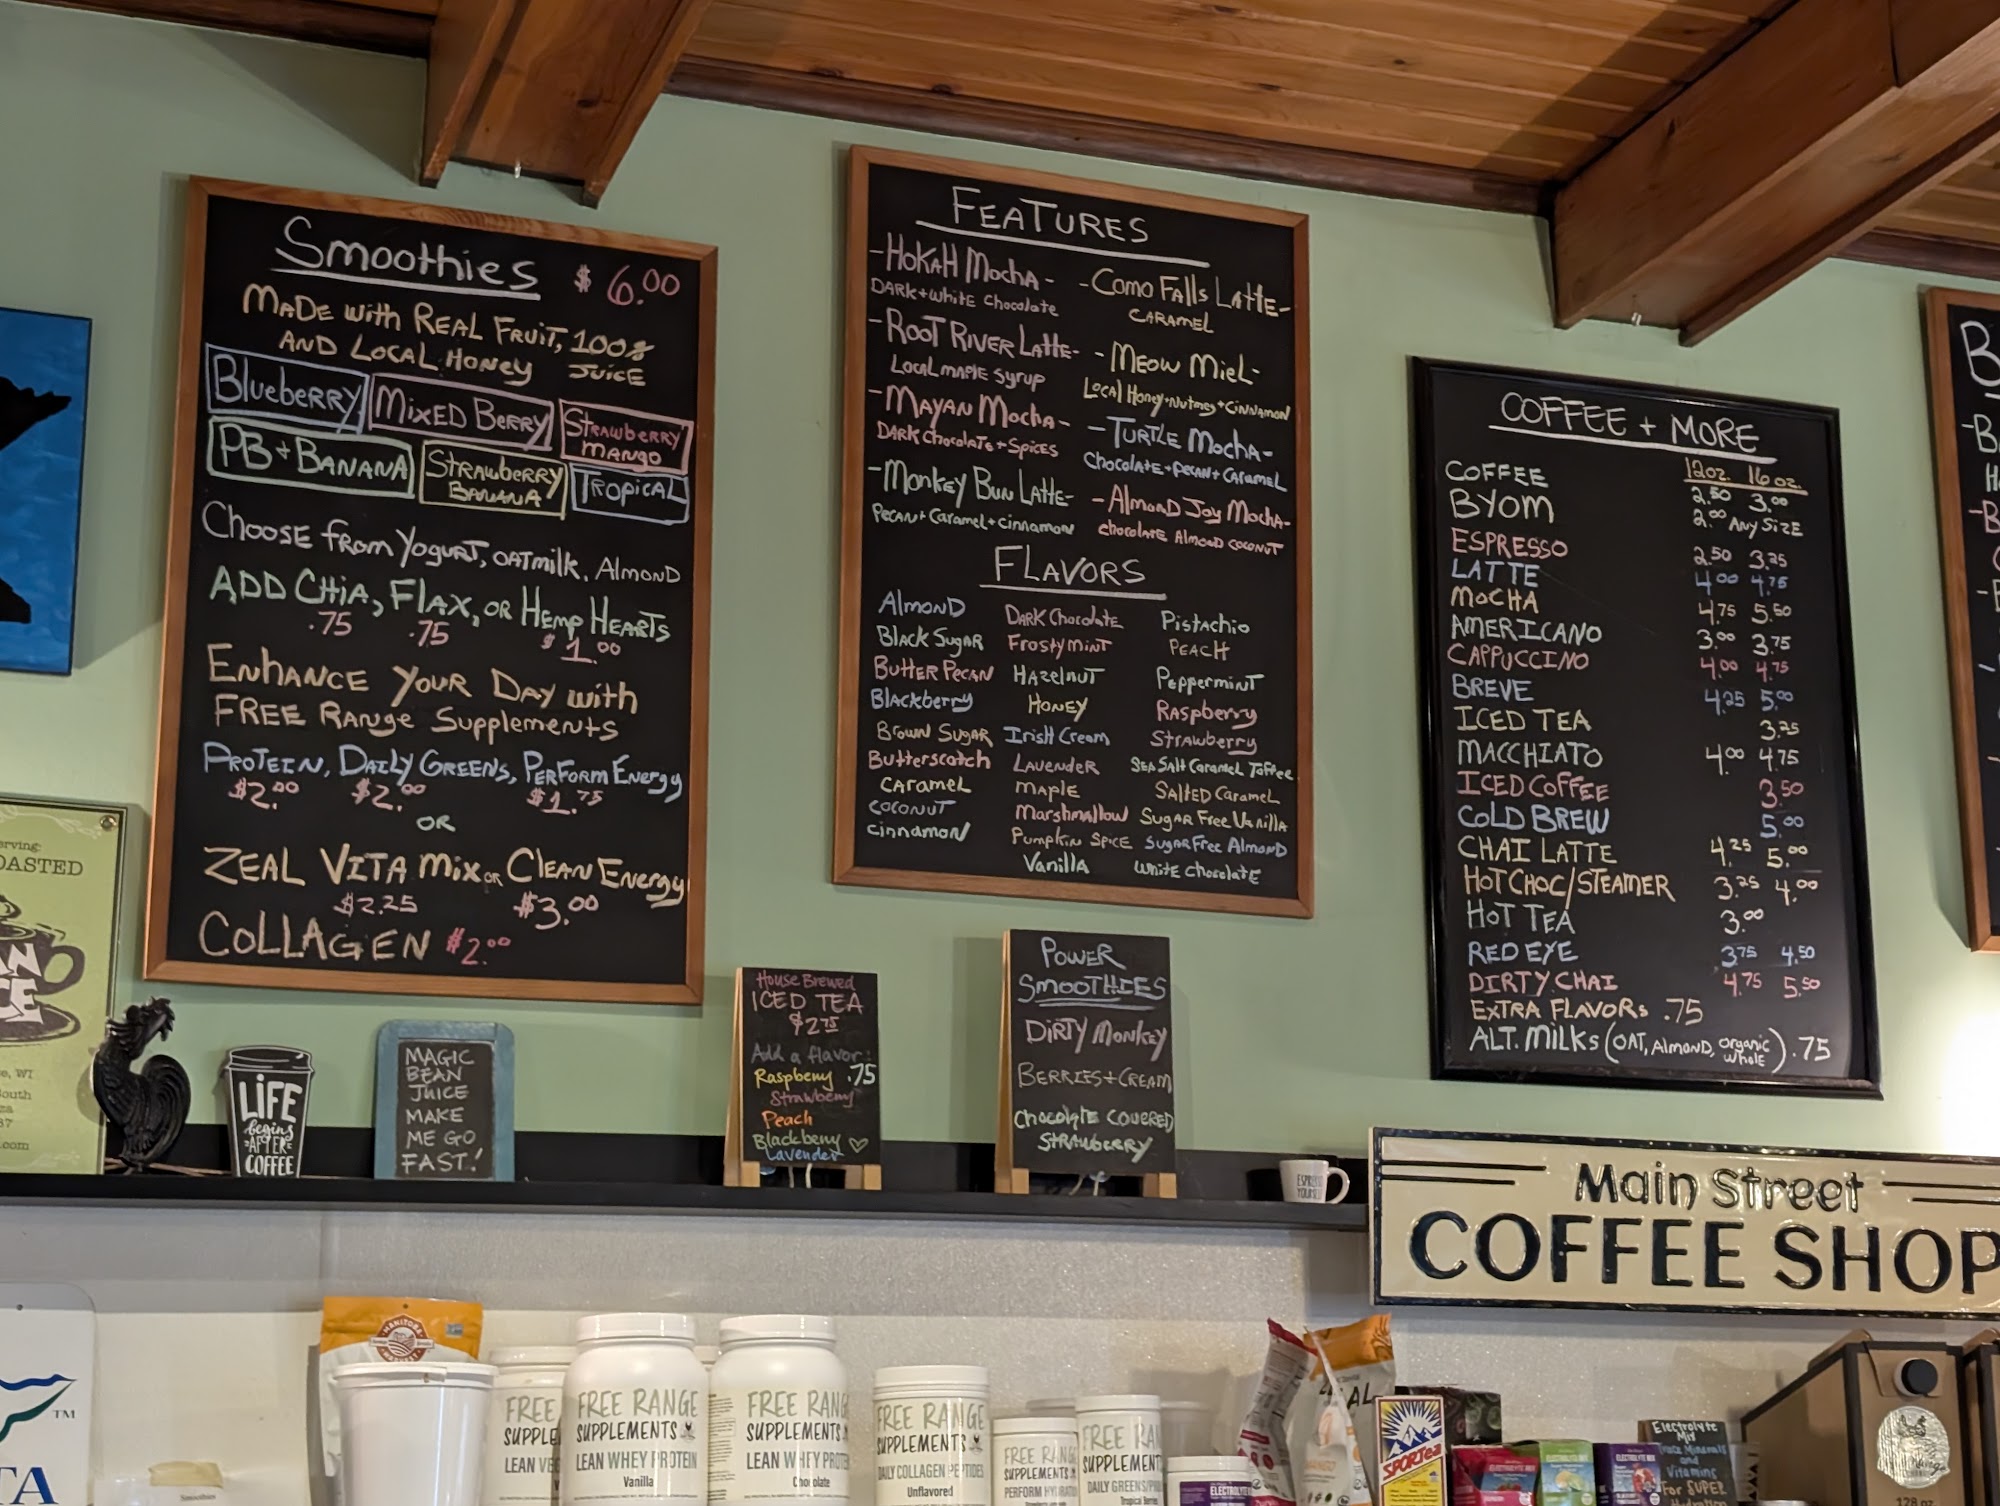 Smoothies $6.00
MADE with REAL FRUIT, 100%
AND LOCAL HONEY JUICE
Blueberry
MIXED BERRY
STRAWBERRY
MANGO
PB + BANANA
STRAWBERRY
BANANA
TROPICAL
CHOOSE from YOGURT, OATMILK, ALMOND
ADD CHIA, FLAX, OR HEMP HEARTS
.75 .75 $1.00
ENHANCE YOUR DAY with
FREE RANGE SUPPLEMENTS
PROTEIN, DAILY GREENS, PERFORM ENERGY
$2.00 $2.00 $1.75
OR
ZEAL VITA MIX OR CLEAN ENERGY
$2.25 $3.00
COLLAGEN $2.00
FEATURES
-HOKAH MOCHA-
DARK + WHITE CHOCOLATE
-ROOT RIVER LATTE-
LOCAL MAPLE SYRUP
-MAYAN MOCHA-
DARK CHOCOLATE + SPICES
-MONKEY BUN LATTE-
PECAN + CARAMEL + CINNAMON
-COMO FALLS LATTE-
CARAMEL
-MEOW MIEL-
LOCAL HONEY + NUTMEG + CINNAMON
-TURTLE MOCHA-
CHOCOLATE + PECAN + CARAMEL
-ALMOND JOY MOCHA-
CHOCOLATE ALMOND COCONUT
FLAVORS
ALMOND
BLACK SUGAR
BUTTER PECAN
Blackberry
BROWN SUGAR
Butterscotch
CARAMEL
COCONUT
CINNAMON
DARK CHOCOLATE
FROSTY MINT
HAZELNUT
HONEY
IRISH CREAM
LAVENDER
MAPLE
MARSHMALLOW
PUMPKIN SPICE
VANILLA
PISTACHIO
PEACH
PEPPERMINT
RASPBERRY
STRAWBERRY
SEA SALT CARAMEL TOFFEE
SALTED CARAMEL
SUGAR FREE VANILLA
SUGAR FREE ALMOND
WHITE CHOCOLATE
COFFEE + MORE
12oz. 16oz.
COFFEE 2.50 3.00
BYOM 2.00 ANY SIZE
ESPRESSO 2.50 3.25
LATTE 4.00 4.75
MOCHA 4.75 5.50
AMERICANO 3.00 3.75
CAPPUCCINO 4.00 4.75
BREVE 4.25 5.00
ICED TEA 3.25
MACCHIATO 4.00 4.75
ICED COFFEE 3.50
COLD BREW 5.00
CHAI LATTE 4.25 5.00
HOT CHOC/STEAMER 3.25 4.00
HOT TEA 3.00
RED EYE 3.75 4.50
DIRTY CHAI 4.75 5.50
EXTRA FLAVORS .75
ALT. MILKS (OAT, ALMOND, ORGANIC WHOLE) .75
LIFE
begins
AFTER
COFFEE
MAGIC
BEAN
JUICE
MAKE
ME GO
FAST!
House Brewed
ICED TEA
$2.75
Add a flavor:
Raspberry .75
Strawberry
Peach
Blackberry
Lavender
POWER
SMOOTHIES
DIRTY MONKEY
BERRIES + CREAM
CHOCOLATE COVERED
STRAWBERRY
ESPRESSO
YOURSELF
Main Street
COFFEE SHOP
MANITOBA
HARVEST
FREE
SUPPLE
LEAN
FREE RANGE
SUPPLEMENTS
LEAN WHEY PROTEIN
Vanilla
FREE RANG
SUPPLEMENTS
LEAN WHEY PROTE
Chocolate
FREE RANGE
SUPPLEMENTS
DAILY COLLAGEN PEPTIDES
Unflavored
FREE RANG
SUPPLEMENTS
PERFORM HYDRAT
FREE RA
SUPPLEMENT
DAILY GREENS
Tropical
SPORTea
Electrolyte
Mix
Trace Minerals
and
Vitamins
For SUPER
Smoothies
TM
TA
OASTED
, WI
outh
.com